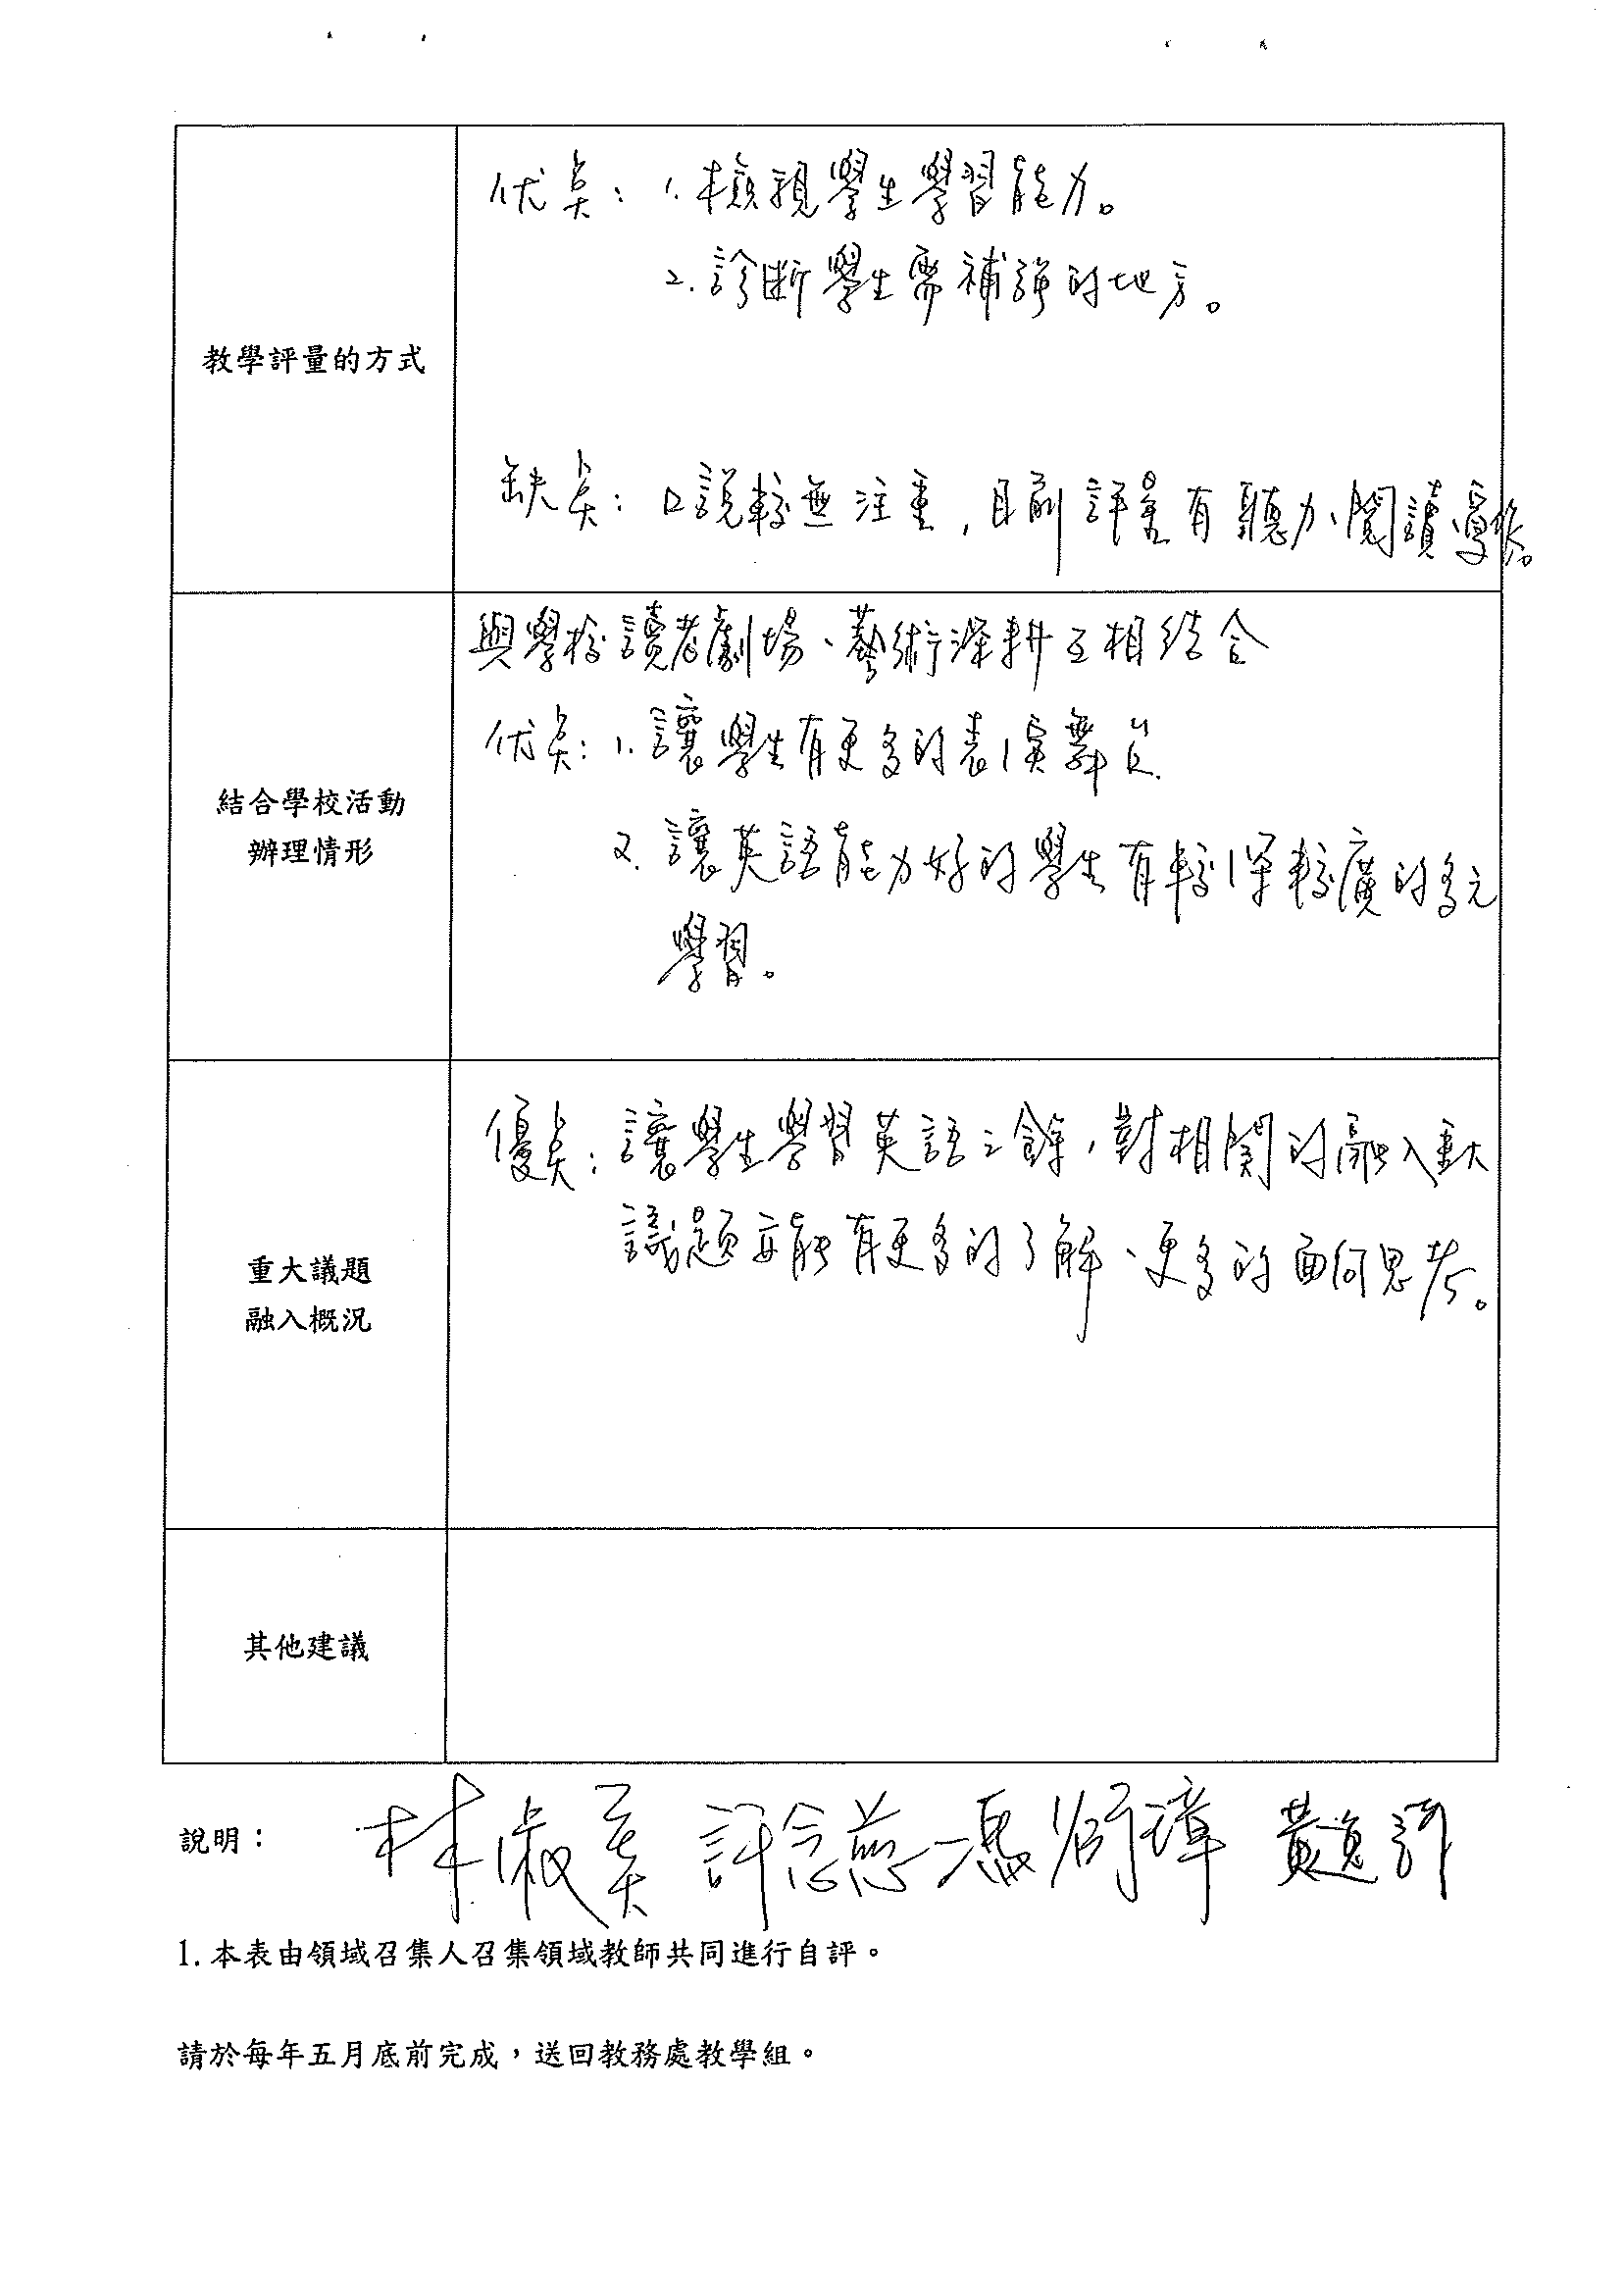 教學評量的方式
优点：1.檢視學生學習能力。
2.診斷學生需補強的地方。
缺点：口說較無注重，目前評量有聽力、閱讀、寫作。
結合學校活動
辦理情形
與學校讀者劇場、藝術深耕互相結合
优点：1.讓學生有更多的表演舞台.
2.讓英語能力好的學生有較深較廣的多元
學習。
重大議題
融入概況
優点：讓學生學習英語之餘，對相関的融入重大
議題亦能有更多的了解、更多的面向思考。
其他建議
說明：
林淑 許念慈 馮 璋 黃
1.本表由領域召集人召集領域教師共同進行自評。
請於每年五月底前完成，送回教務處教學組。